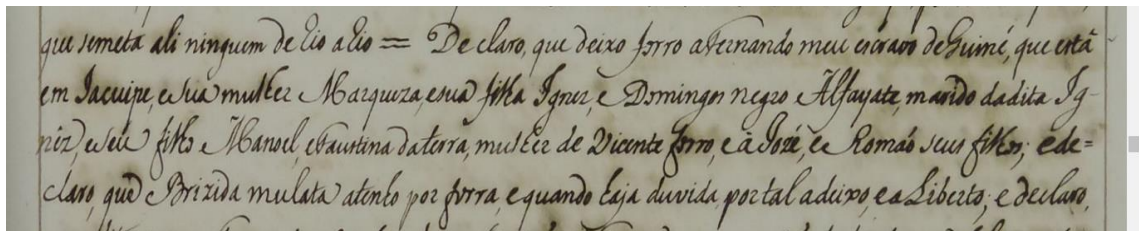 que semeta ali ninguem de Rio a Rio = Declaro, que deixo forro a Fernando meu escravo de Guiné, que está
em Jacuipe, e sua mulher Marqueza, e sua filha Ignez, e Domingos negro e Alfayate, marido da dita Ig-
nêz, e seu filho Manoel, e Faustina da terra, mulher de Vicente forro, e á Jozé, e Romaõ seus filhos; e de=
claro, que Brizida mulata atenho por forra, e quando haja duvida, por tal a deixo, e a Liberto; e declaro,